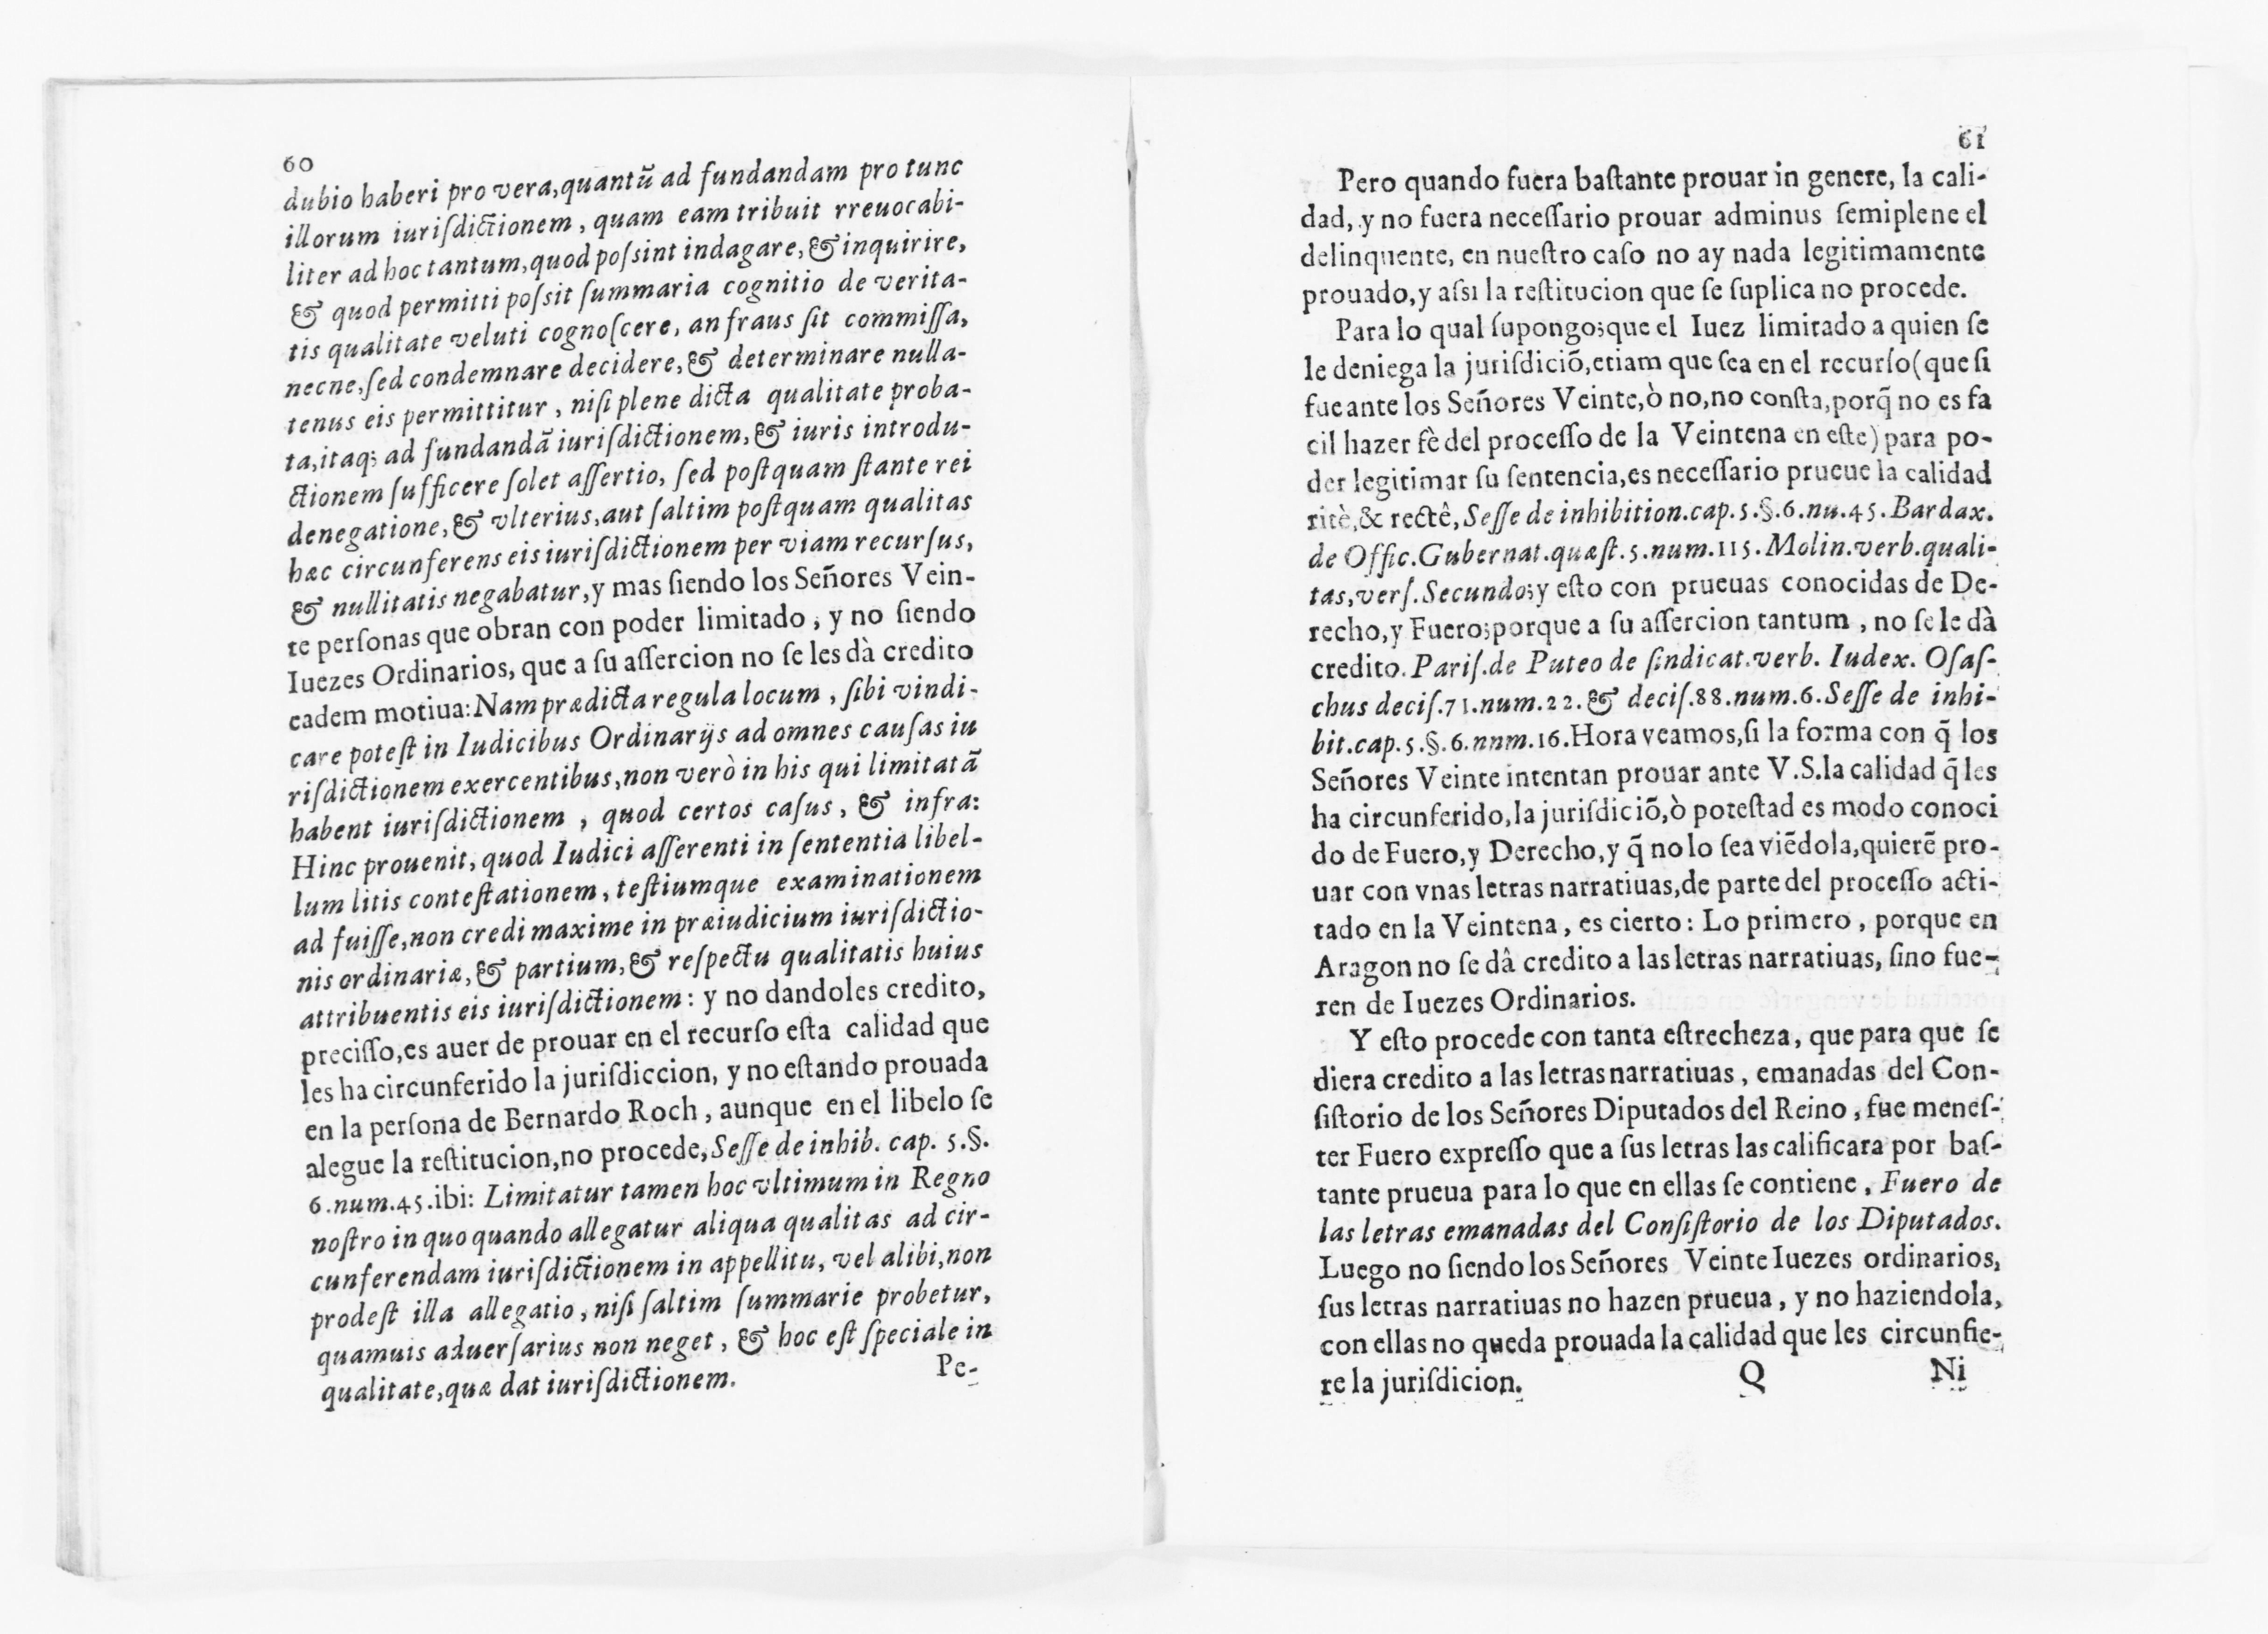 60
dubio haberi pro vera,quantũ ad fundandam pro tunc
illorum iuriſdictionem, quam eam tribuit rreuocabi-
liter ad hoc tantum,quod poſsint indagare,& inquirire,
& quod permitti poſsit ſummaria cognitio de verita-
tis qualitate veluti cognoſcere, an fraus ſit commiſſa,
necne,ſed condemnare decidere,& determinare nulla-
tenus eis permittitur, niſi plene dicta qualitate proba-
ta,itaq; ad fundandã iuriſdictionem,& iuris introdu-
ctionem ſufficere ſolet aſſertio, ſed poſtquam ſtante rei
denegatione,& vlterius,aut ſaltim poſtquam qualitas
hæc circunferens eis iuriſdictionem per viam recurſus,
& nullitatis negabatur,y mas ſiendo los Señores Vein-
te perſonas que obran con poder limitado, y no ſiendo
Iuezes Ordinarios, que a ſu aſſercion no ſe les dà credito
eadem motiua:Nam prædicta regula locum, ſibi vindi-
care poteſt in Iudicibus Ordinarijs ad omnes cauſas iu
riſdictionem exercentibus,non verò in his qui limitatã
habent iuriſdictionem, quod certos caſus, & infra:
Hinc prouenit, quod Iudici aſſerenti in ſententia libel-
lum litis conteſtationem, teſtiumque examinationem
ad fuiſſe,non credi maxime in præiudicium iuriſdictio-
nis ordinariæ,& partium,& reſpectu qualitatis huius
attribuentis eis iuriſdictionem: y no dandoles credito,
preciſſo,es auer de prouar en el recurſo eſta calidad que
les ha circunferido la juriſdiccion, y no eſtando prouada
en la perſona de Bernardo Roch, aunque en el libelo ſe
alegue la reſtitucion,no procede,Seſſe de inhib. cap. 5.§.
6.num.45.ibi: Limitatur tamen hoc vltimum in Regno
noſtro in quo quando allegatur aliqua qualitas ad cir-
cunferendam iuriſdictionem in appellitu, vel alibi,non
prodeſt illa allegatio, niſi ſaltim ſummarie probetur,
quamuis aduerſarius non neget, & hoc eſt ſpeciale in
qualitate,quæ dat iuriſdictionem.
Pe-
61
Pero quando fuera baſtante prouar in genere, la cali-
dad, y no fuera neceſſario prouar adminus ſemiplene el
delinquente, en nueſtro caſo no ay nada legitimamente
prouado,y aſsi la reſtitucion que ſe ſuplica no procede.
Para lo qual ſupongo;que el Iuez limitado a quien ſe
le deniega la juriſdiciõ,etiam que ſea en el recurſo(que ſi
fue ante los Señores Veinte,ò no,no conſta,porq̃ no es fa
cil hazer fè del proceſſo de la Veintena en eſte) para po-
der legitimar ſu ſentencia,es neceſſario prueue la calidad
ritè,& rectê, Seſſe de inhibition.cap.5.§.6.nu.45.Bardax.
de Offic.Gubernat.quæſt.5.num.115.Molin.verb.quali-
tas,verſ.Secundo;y eſto con prueuas conocidas de De-
recho,y Fuero;porque a ſu aſſercion tantum, no ſe le dà
credito. Pariſ.de Puteo de ſindicat.verb. Iudex. Oſaſ-
chus deciſ.71.num.22.& deciſ.88.num.6.Seſſe de inhi-
bit.cap.5.§.6.nnm.16.Hora veamos,ſi la forma con q̃ los
Señores Veinte intentan prouar ante V.S.la calidad q̃ les
ha circunferido,la juriſdiciõ,ò poteſtad es modo conoci
do de Fuero,y Derecho,y q̃ no lo ſea viẽdola,quierẽ pro-
uar con vnas letras narratiuas,de parte del proceſſo acti-
tado en la Veintena, es cierto: Lo primero, porque en
Aragon no ſe dâ credito a las letras narratiuas, ſino fue-
ren de Iuezes Ordinarios.
Y eſto procede con tanta eſtrecheza, que para que ſe
diera credito a las letras narratiuas, emanadas del Con-
ſiſtorio de los Señores Diputados del Reino, fue meneſ-
ter Fuero expreſſo que a ſus letras las calificara por baſ-
tante prueua para lo que en ellas ſe contiene, Fuero de
las letras emanadas del Conſiſtorio de los Diputados.
Luego no ſiendo los Señores Veinte Iuezes ordinarios,
ſus letras narratiuas no hazen prueua, y no haziendola,
con ellas no queda prouada la calidad que les circunfie-
re la juriſdicion.
Q
Ni